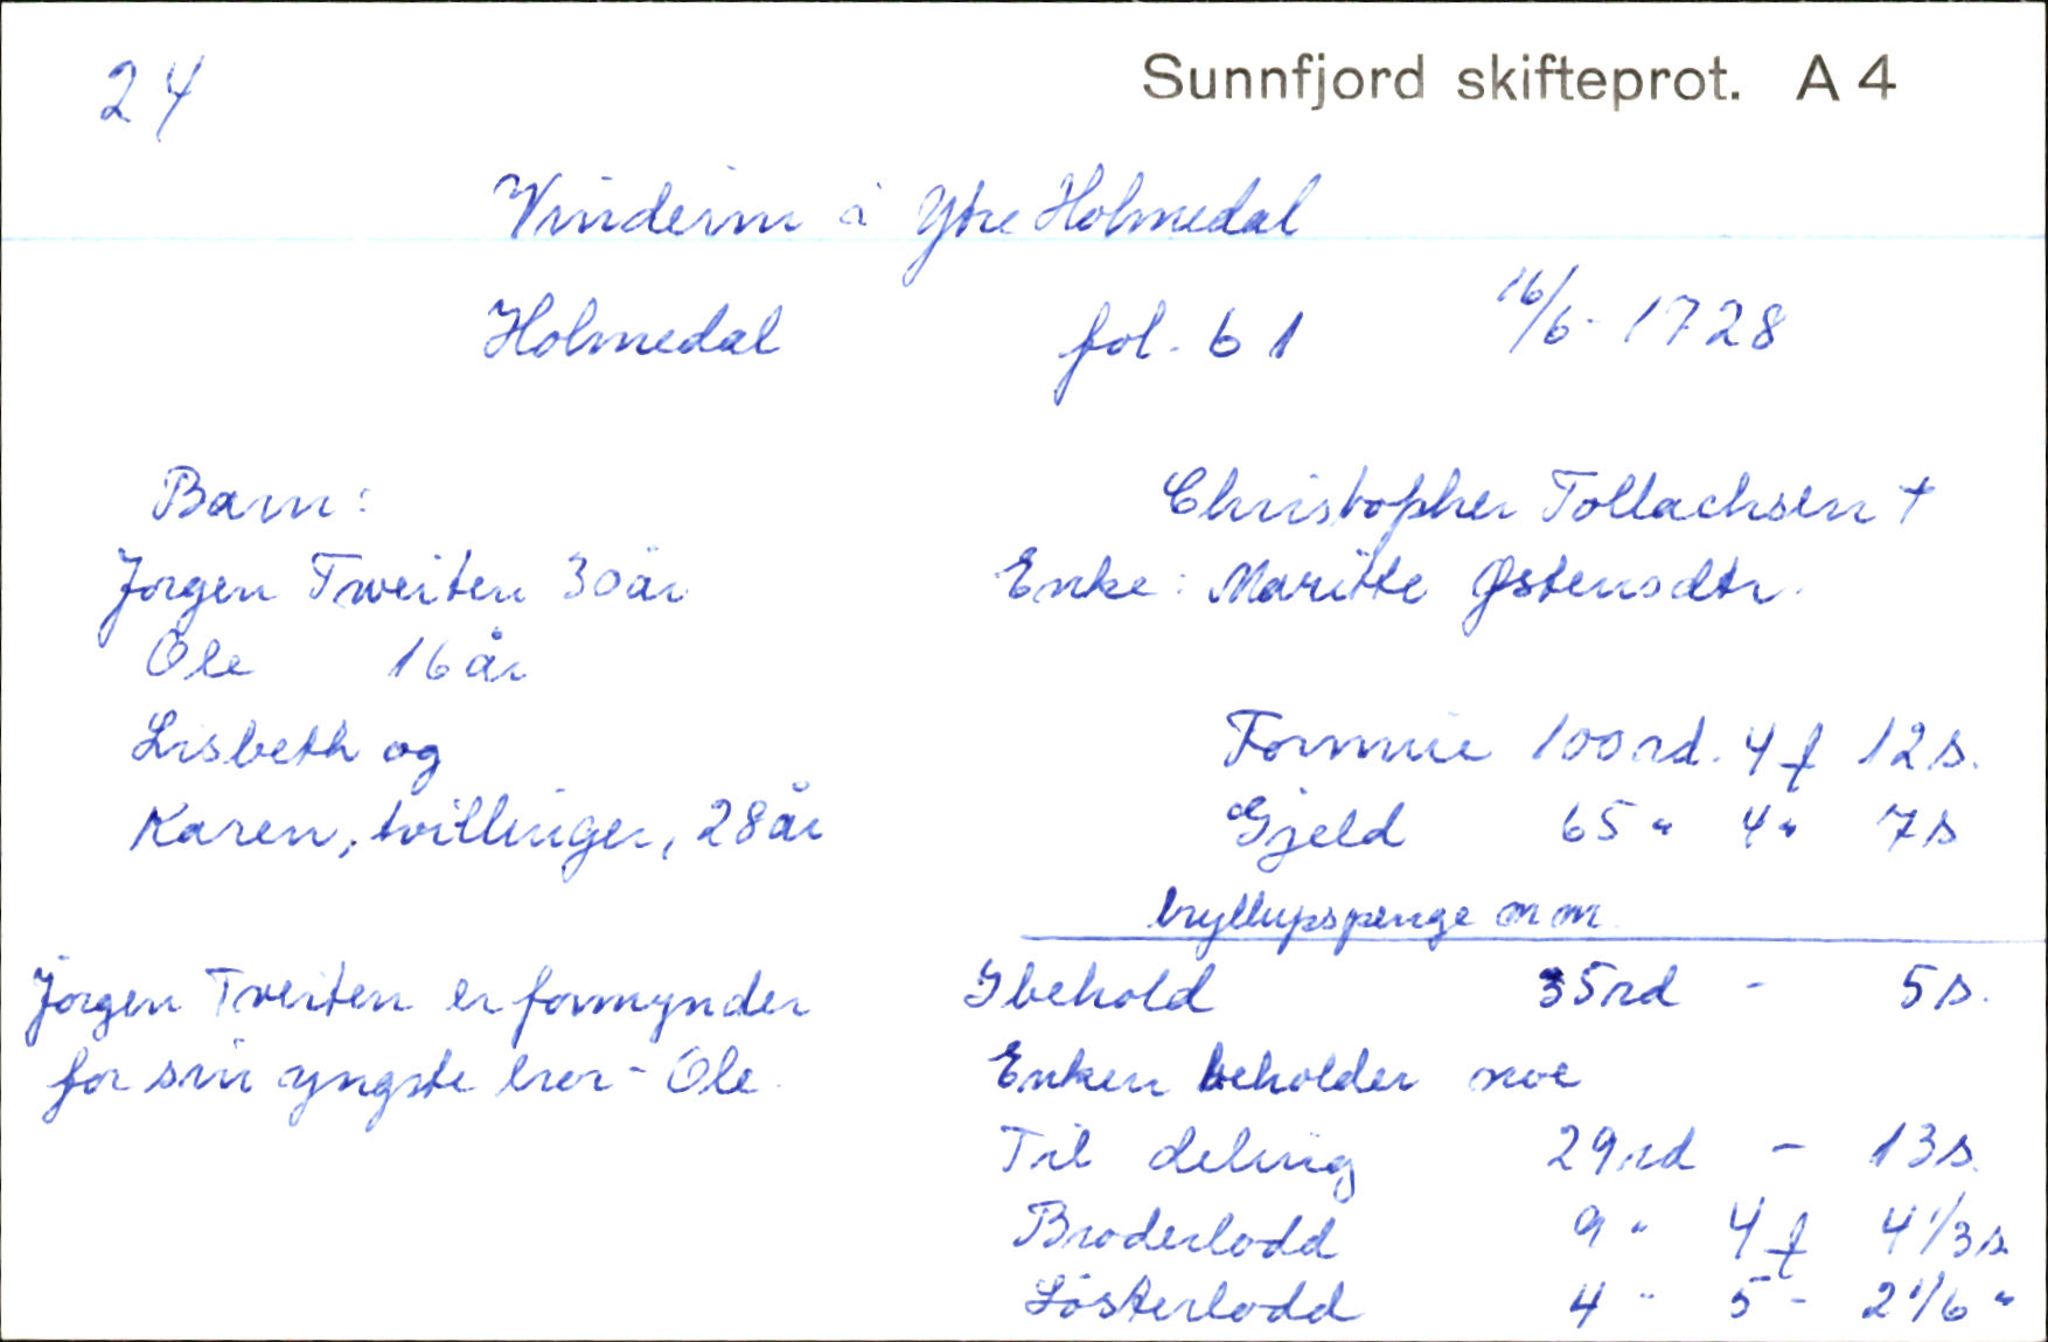 24
Sunnfjord skifteprot. A 4
Vinderim i Ytre Holmedal
Holmedal fol. 61 16/6-1728
Barn:
Jørgen Tweiten 30 år
Ole 16 år
Lisbeth og
Karen, tvillinger, 28 år
Jørgen Tveiten er formynder
for sin yngste bror - Ole.
Christopher Tollachsen †
Enke: Maritte Østensdtr.
Formue 100 rd. 4 f 12 s.
Gjeld 65 " 4 " 7 s
bryllupspenge m m
Ibehold 35 rd - 5 s.
Enken beholder noe
Til deling 29 rd - 13 s.
Broderlodd 9 " 4 f 4 1/3 s.
Søsterlodd 4 " 5 - 2 1/6 "